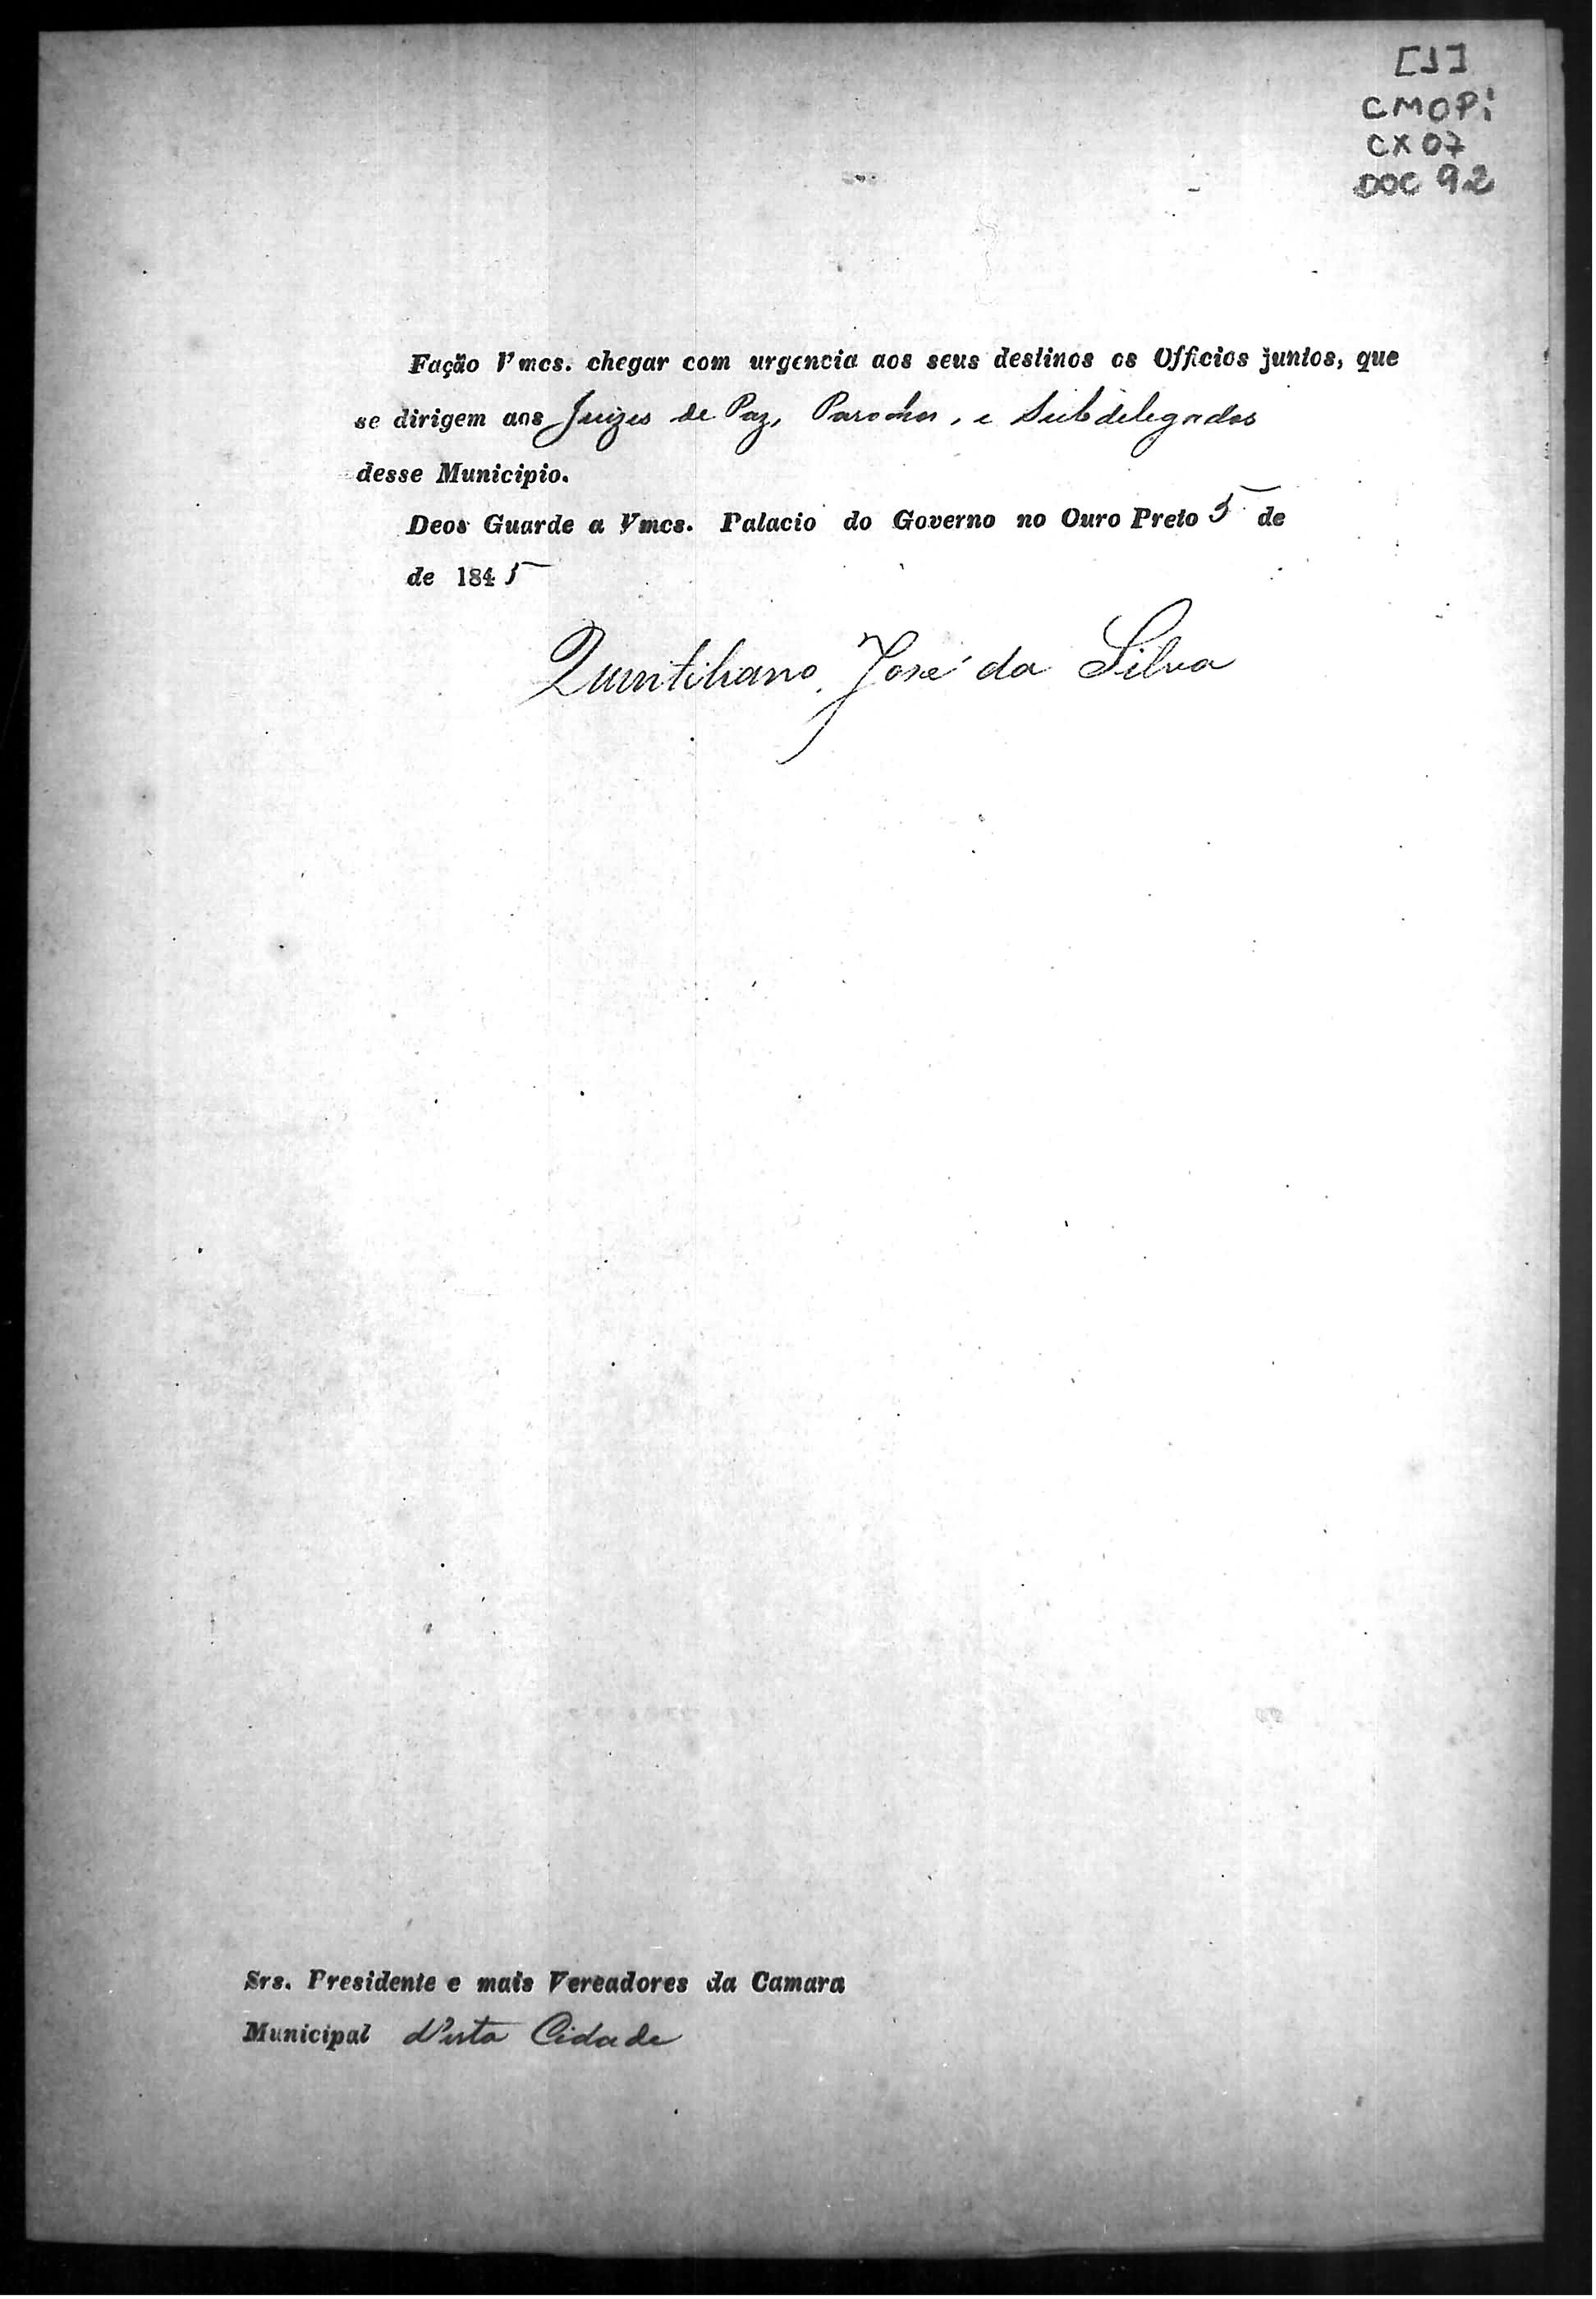 [1]
CMOPi
CX 07
DOC 92
Fação Vmcs. chegar com urgencia aos seus destinos os Officios juntos, que
se dirigem aos Juizes de Paz, Parochos, e Subdelegados
desse Municipio.
Deos Guarde a Vmcs. Palacio do Governo no Ouro Preto 5 de
de 1845
Quintiliano José da Silva
Srs. Presidente e mais Vereadores da Camara
Municipal d'esta Cidade